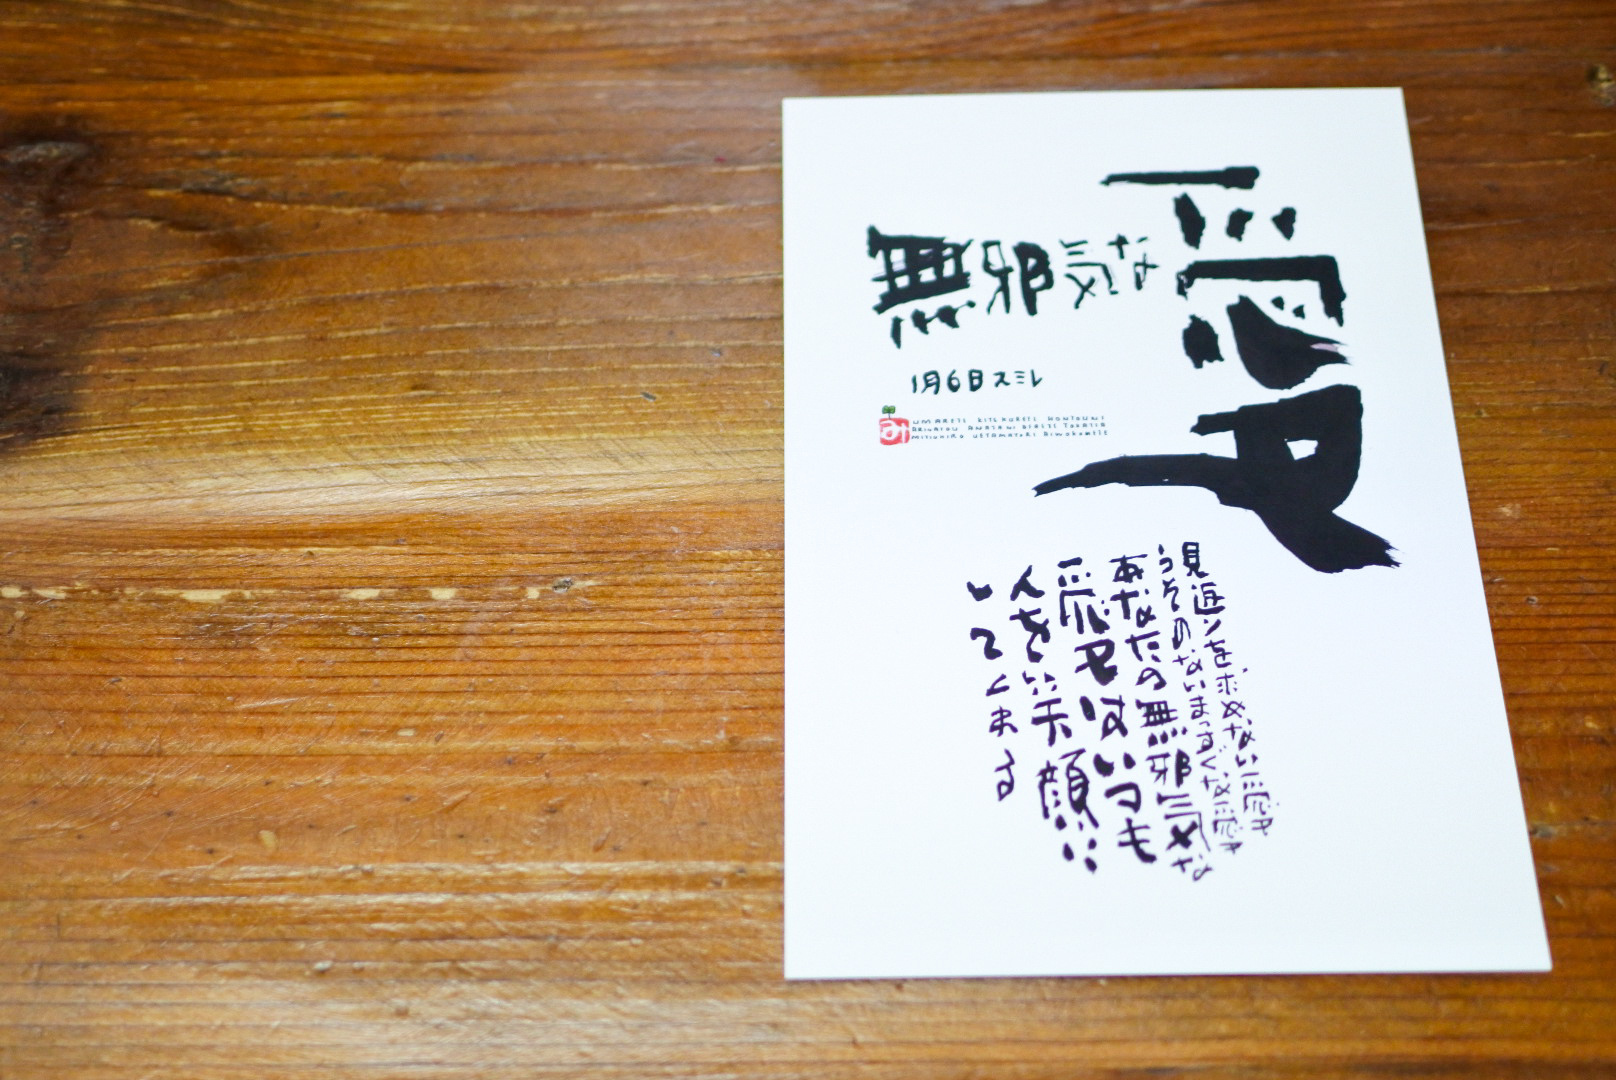 無邪気な
愛
1月6日スミレ
み
UMARETE KITEKURETE HONTOUNI
ARIGATOU ANATANI DEAETE
MITIHIRO
見返りを求めない愛
うそのないまっすぐな愛
あなたの無邪気な
愛はいつも
人をいい笑顔に
していてくれる